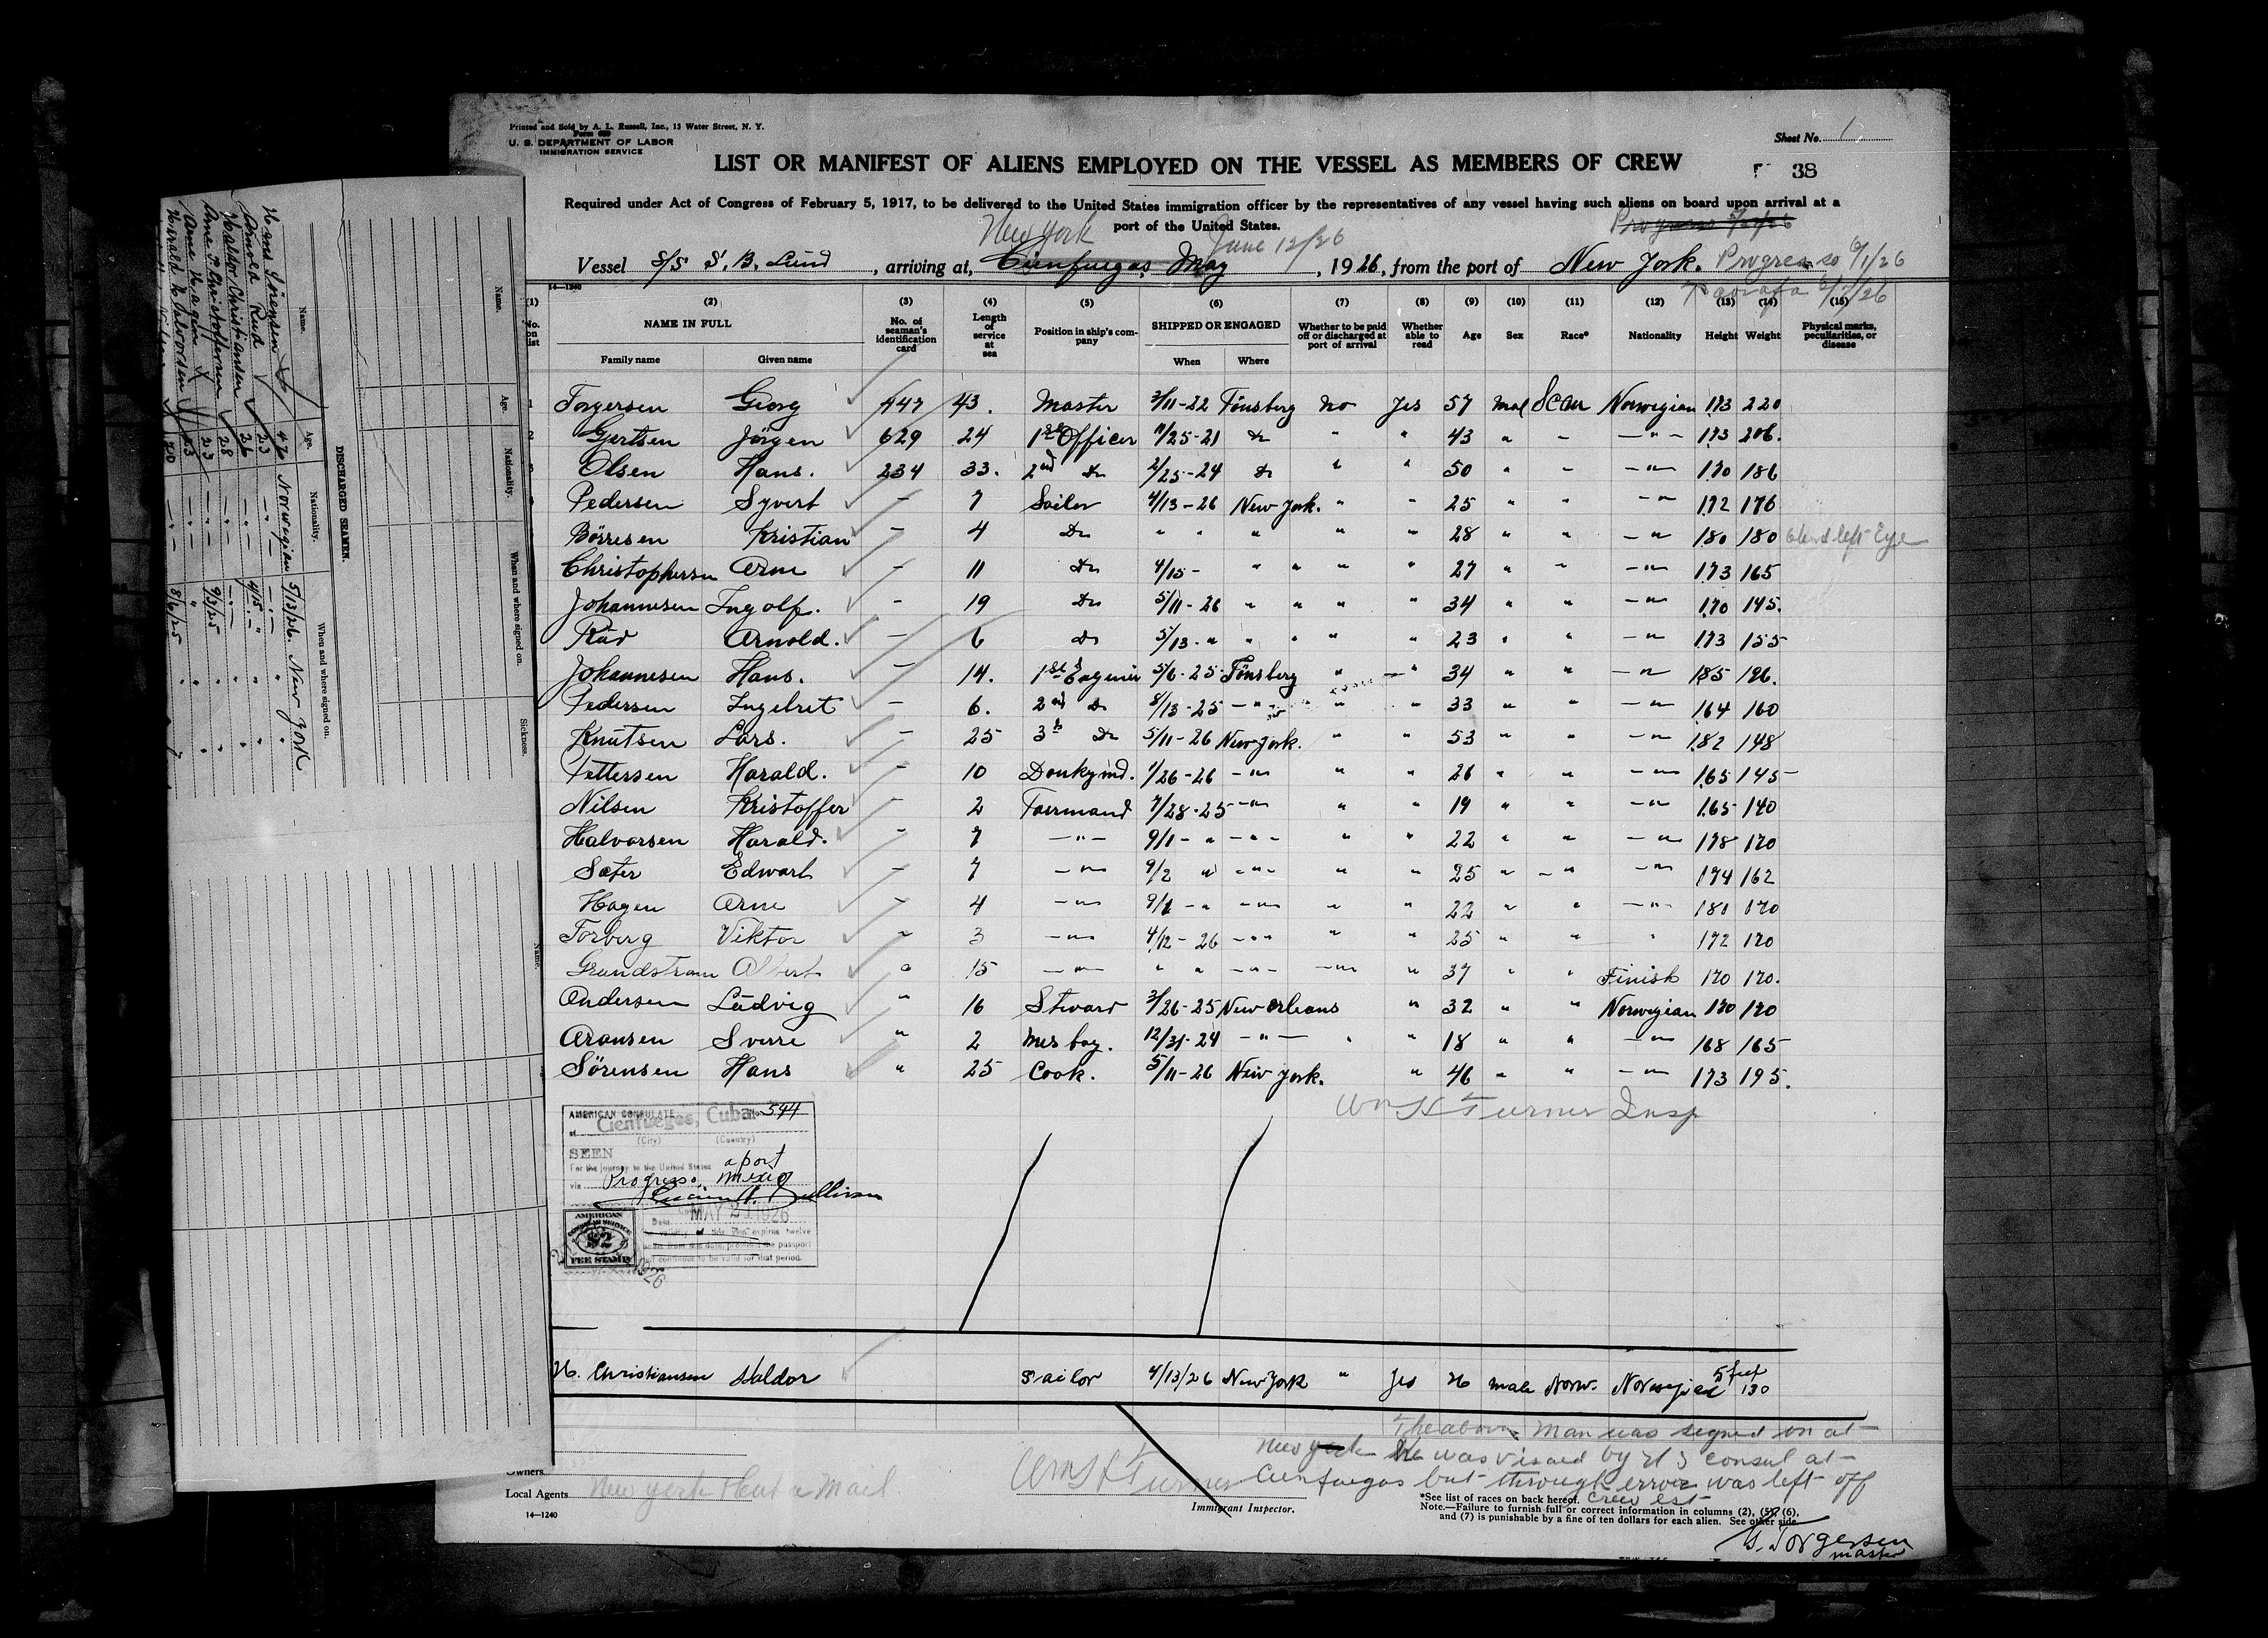 Printed and Sold by A. L. Russell, Inc., 13 Water Street, N. Y.
U. S. DEPARTMENT OF LABOR
IMMIGRATION SERVICE
Sheet No. 1
LIST OR MANIFEST OF ALIENS EMPLOYED ON THE VESSEL AS MEMBERS OF CREW
38
Required under Act of Congress of February 5, 1917, to be delivered to the United States immigration officer by the representatives of any vessel having such aliens on board upon arrival at a
port of the United States.
New York June 12/26
Vessel S/S S. B. Lund, arriving at, Cienfuegos May, 1926, from the port of New York. Progreso 6/1/26
14—1240
(1) (2) (3) (4) (5) (6) (7) (8) (9) (10) (11) (12) (13) (14) (15)
No. on list NAME IN FULL No. of seaman's identification card Length of service at sea Position in ship's company SHIPPED OR ENGAGED Whether to be paid off or discharged at port of arrival Whether able to read Age Sex Race* Nationality Height Weight Physical marks, peculiarities, or disease
Family name Given name When Where
1 Torgersen Georg 447 43. Master 3/11-22 Tönsberg no Yes 57 Mal Scan Norwegian 173 220
2 Gertsen Jörgen 629 24 1st Officer 11/25-21 do " " 43 " - -"- 173 206.
3 Olsen Hans. 234 33. 2nd do 2/25-24 do " " 50 " - -"- 170 186
Pedersen Syvert - 7 Sailor 4/13-26 New York. " " 25 " " -"- 172 176
Börresen Kristian - 4 do " " " " " 28 " " -"- 180 180 blind left Eye
Christophersen Arne - 11 do 4/15- " " " " 27 " " -"- 173 165
Johannesen Ingolf. - 19 do 5/11-26 " " " " 34 " " -"- 170 145.
Rud Arnold. - 6 do 5/13-" " " " " 23 " " -"- 173 155
Johannesen Hans. - 14. 1st Enginer 5/6-25 Tönsberg " " 34 " " -"- 185 196.
Pedersen Ingebret - 6. 2nd do 8/13-25 -"- " " 33 " " -"- 164 160
Knutsen Lars. - 25 3d do 5/11-26 New York. " " 53 " " -"- 182 148
Pettersen Harald. - 10 Donkymd. 1/26-26 -"- " " 26 " " -"- 165 145
Nilsen Kristoffer - 2 Foermand 7/28-25 -"- " " 19 " " -"- 165 140
Halvorsen Harald. - 7 -"- 9/1-" -"- " " 22 " " -"- 178 170
Sæter Edwart - 7 -"- 9/2 " -"- " " 25 " " -"- 174 162
Hagen Arne - 4 -"- 9/1-" -"- " " 22 " " -"- 180 170
Torberg Viktor " 3 -"- 4/12-26 -"- " " 25 " " " 172 170
Grundstrom Albert " 15 -"- " " -"- -"- " 37 " " Finish 170 170.
Andersen Ludvig " 16 Stward 3/26-25 New Orleans " 32 " " Norwegian 170 170
Aronsen Sverre " 2 Mes boy. 12/31-24 -"- " " 18 " " -"- 168 165
Sörensen Hans " 25 Cook. 5/11-26 New York. " 46 " " -"- 173 195.
Wm H Turner Insp
AMERICAN CONSULATE No. 544
at Cienfuegos, Cuba
(City) (Country)
SEEN
For the journey to the United States a port
via Progreso, Mexico
Date MAY 21 1926
AMERICAN
CONSULAR SERVICE
$2
FEE STAMP
H. Christiansen Haldor Sailor 4/13/26 New York " Yes 26 male Norw. Norwegian 5 feet 130
The above man was signed on at
New York he was visaed by U S Consul at
Cienfuegos but through error was left off
crew list
Owners
Local Agents New York & Cuba Mail
Wm H Turner
Immigrant Inspector.
*See list of races on back hereof.
Note.—Failure to furnish full or correct information in columns (2), (5), (6),
and (7) is punishable by a fine of ten dollars for each alien. See other side.
14—1240
G. Torgersen
master
DISCHARGED SEAMEN.
Name. Age. Nationality. When and where signed on.
Hans Sörensen 46 Norwegian 5/13/26. New York
Arnold Rud 23 -"- -"- "
Haldor Christiansen 26 -"- 4/15 - "
Arne Christoffersen 28 -"- -"- "
Arne Hagen 23 -"- 9/3/25 "
Name. Age. Nationality. When and where signed on. Sickness.
Name.